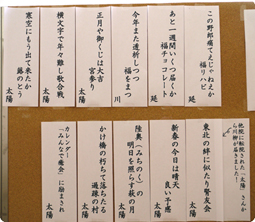 この野郎痛てえじゃねえか
福リハビ
延
あと一週間いくつ届くか
福チョコレート
延
今年また造祈しつつ
福をつまつ
川
正月や御くじは大吉
宮参り
太陽
横文字で年々難し歌合戦
太陽
寒空にもう出て来たか
蕗のとう
太陽
他院に転院された「太陽」さんか
ら川柳が届きました!
東北の絆に似たり繋友会
太陽
新春の今日は晴天
良い予感
太陽
陸奥(みちのく)の
明日を照らす萩の月
太陽
かけ橋の朽ちて落ちたる
過疎の村
太陽
カレンダー
「みんなで癒会」に励まされ
太陽